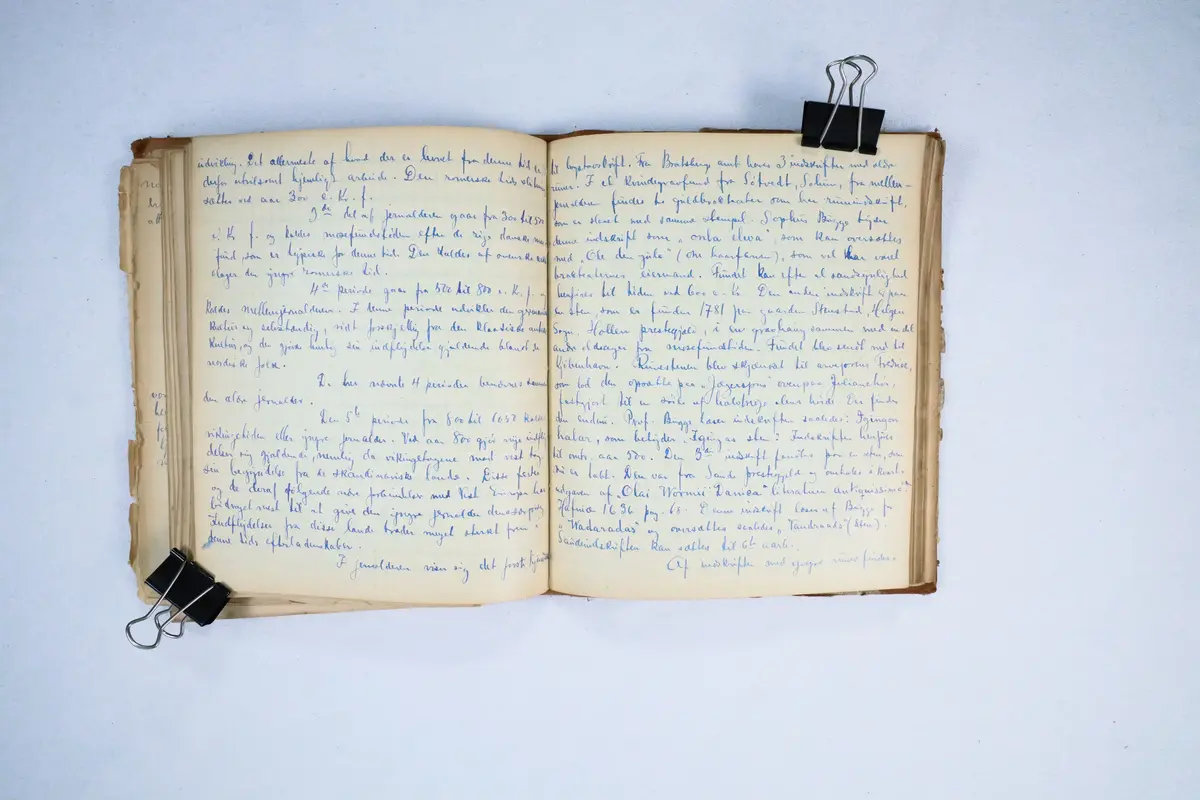 indvirkn. Det allermeste af hvad der er levnet fra denne tid er
derfor utvilsomt hjemligt arbeide. Den romerske tids slutten
sættes ved aar 300 e. K. f.
3die del af jernalderen gaar fra 300 til 500
e. K. f. og kaldes mosefundstiden efter de rige danske mose
fund som er typiske for denne tid. Den kaldes af svenske
den yngre romerske tid.
4de periode gaar fra 500 til 800 e. K. f. og
kaldes mellemjernalderen. I denne periode udvikler den germanske
kultur sig selvstændig, vidt forskjellig fra den klassiske antike
kultur, og den gjøre hurtig sin indflydelse gjældende blandt de
nordiske folk.
De her nævnte 4 perioder benævnes
den ældre jernalder.
Den 5te periode fra 800 til 1050 kaldes
vikingetiden eller yngre jernalder. Ved aar 800 gjør nye indfly
delser sig gjældende, nemlig da vikingetogene mod vest tog
sin begyndelse fra de skandinaviske lande. Disse
og de deraf følgende nære forbindelser med Vest Europa har
bidraget mest til at give den yngre jernalder dens særpræg.
Indflydelsen fra disse lande træder meget stærkt frem i
denne tids efterladenskaber.
I jernalderen viser sig det første
til bogstavskrift. Fra Bratsberg amt haves 3 indskrifter med ældre
runer. I et kvindegravfund fra Søtvedt, Solum, fra mellem-
jernalderen findes to guldbrakteater som har runeindskrift,
som er slaaet med samme stempel. Sophus Bugge tyder
denne indskrift som „onla elwa", som kan oversættes
med „Ole den gule" (om haarfarven), som vel har været
brakteaternes eiermand. Fundet kan efter al sandsynlighed
henføres til tiden ved 600 e. K. Den anden indskrift er paa
en sten, som er funden 1781 paa gaarden Stenstad, Helgen
Sogn, Hollen prestegjeld, i en gravhaug sammen med endel
andre oldsager fra mosefundstiden. Fundet blev sendt ned til
Kjøbenhavn. Runestenen blev skjænket til arveprins Fredrik,
som lod den opsætte paa „Jægerspris" ovenpaa Julianehøi,
Der findes
den endnu. Prof. Bugge læser indskriften saaledes: Igingon
halar, som betyder: Igingas sten. Indskriften henføres
til omtr. aar 500. Den 3die indskrift fandtes paa en sten, som
nu er tabt. Den var fra Sande prestegjeld og omtales i
udgaven af „Olai Wormii Danica" literatura antiquissima
Hafniæ 1636 pag. 68. Denne indskrift læses af Bugge for
„Wadaradas" og oversættes saaledes „Vandraads" (sten).
Sandeindskriften kan sættes til 6te aarh.
Af indskrifter med yngre runer findes